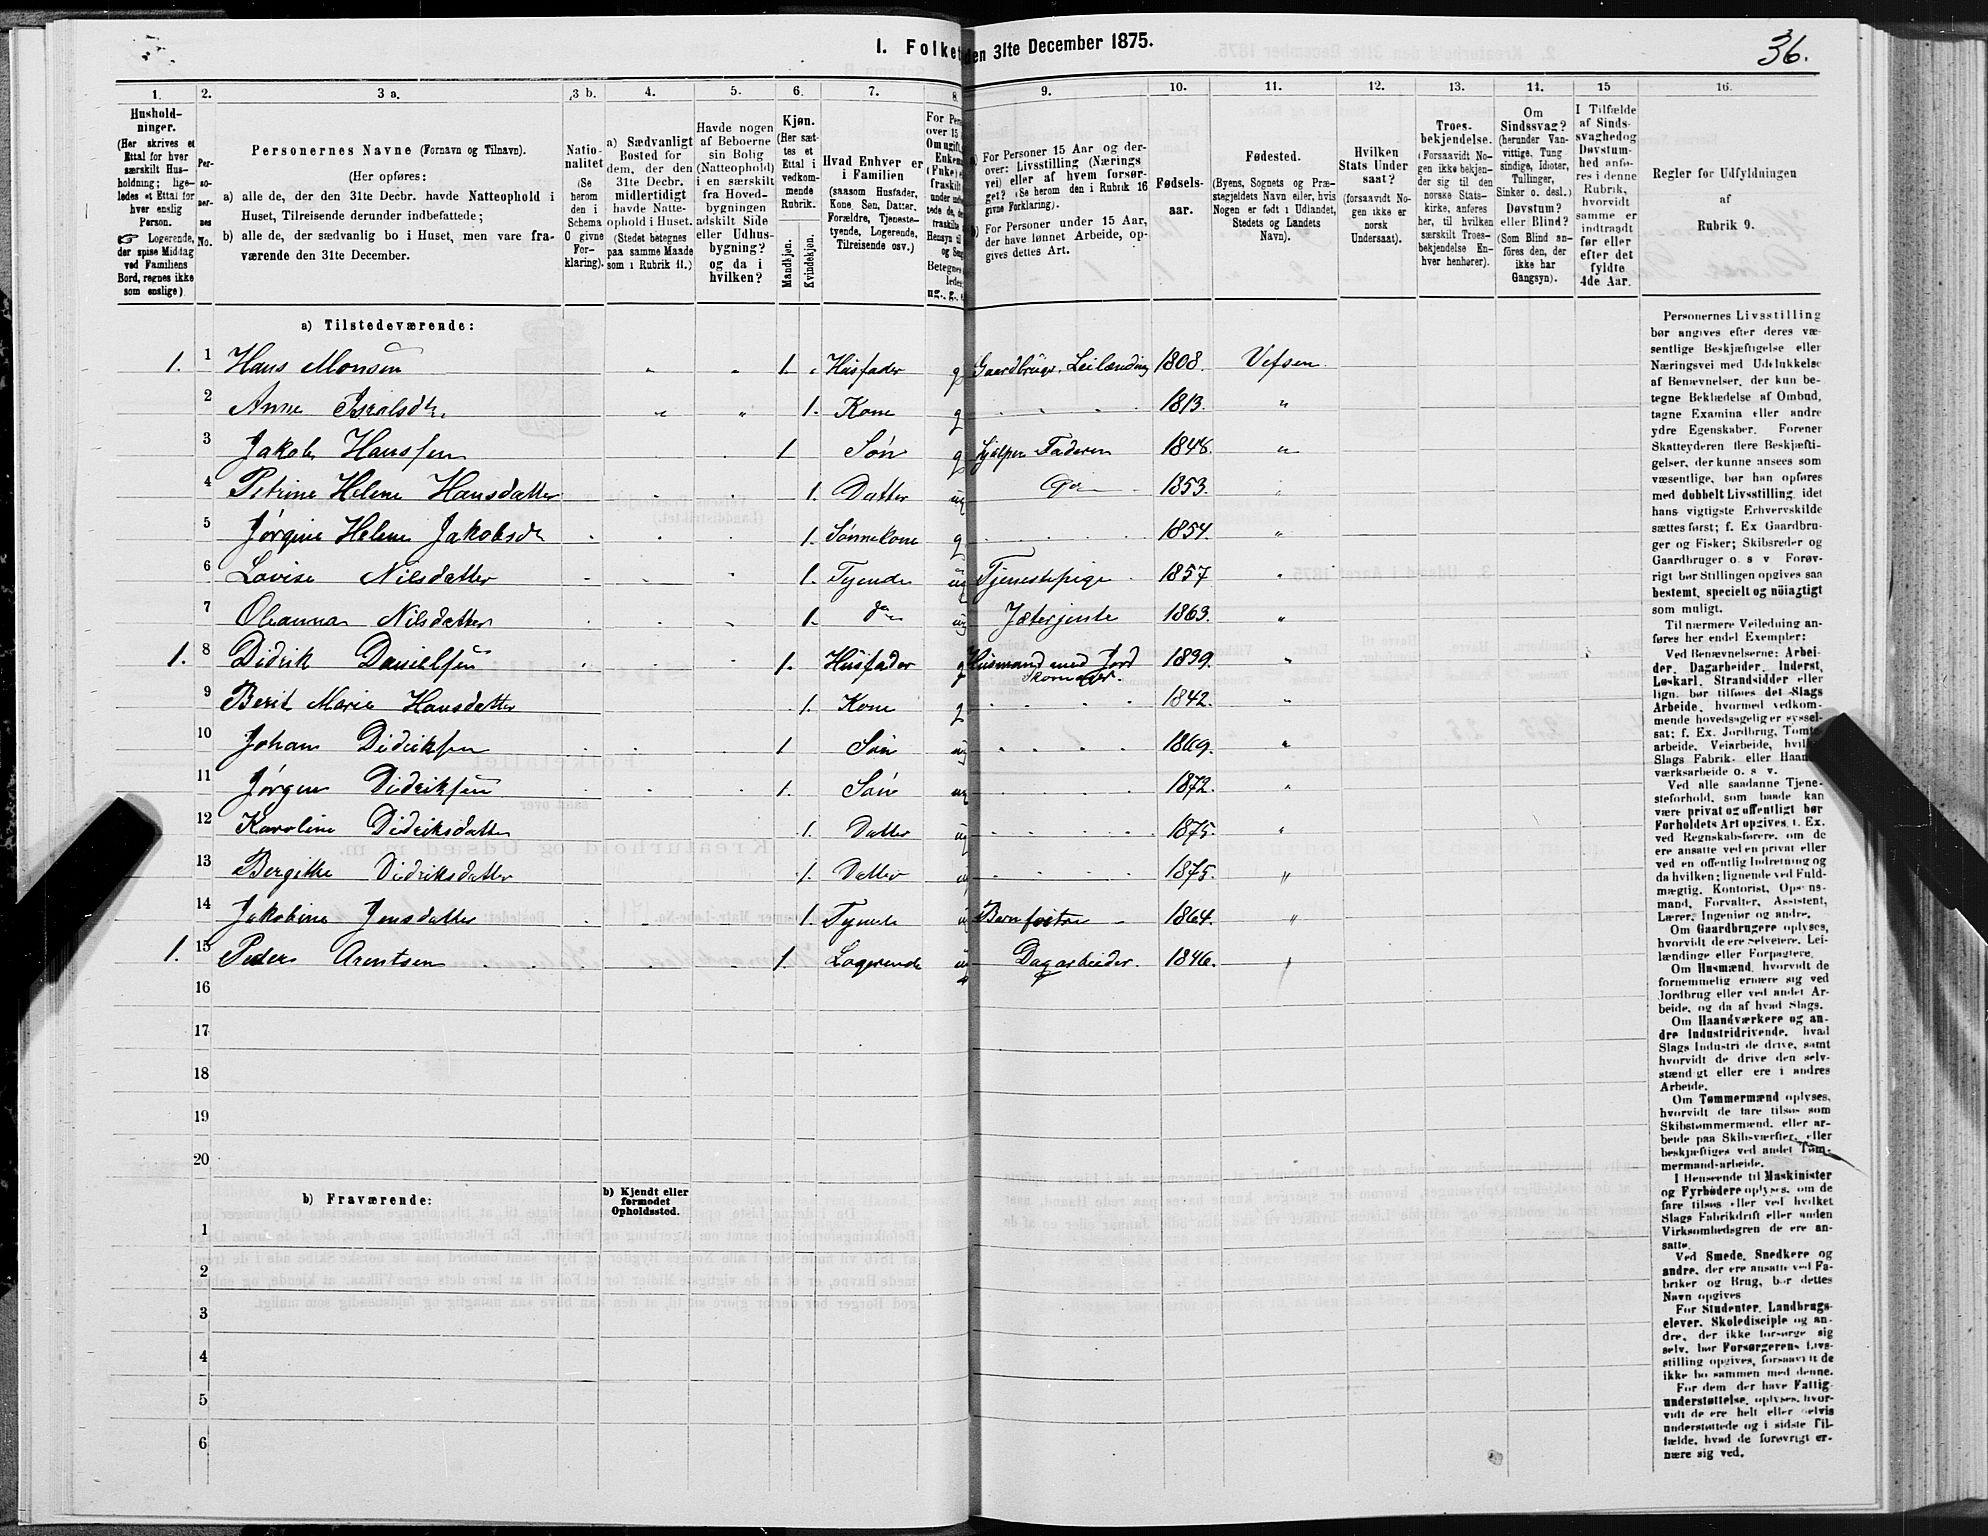 I. Folket den 31te December 1875.
36.
1.
Hushold-
ninger.
(Her skrives et
Ettal for hver
særskilt Hus-
holdning; lige-
ledes et Ettal for
hver enslig
Person.
☞ Logerende,
der spise Middag
ved Familiens
Bord, regnes ikke
som enslige).
2.
Per-
so-
ner-
nes
No.
3 a.
Personernes Navne (Fornavn og Tilnavn).
(Her opføres:
a) alle de, der den 31te Decbr. havde Natteophold i
Huset, Tilreisende derunder indbefattede;
b) alle de, der sædvanlig bo i Huset, men vare fra-
værende den 31te December.
3 b.
Natio-
nalitet
(Se
herom
den i
Schema
C givne
For-
klaring).
4.
a) Sædvanligt
Bosted for
dem, der den
31te Decbr.
midlertidigt
havde Natte-
ophold i Huset.
(Stedet betegnes
paa samme Maade
som i Rubrik 11.)
5.
Havde nogen
af Beboerne
sin Bolig
(Natteophold)
i en særskilt
fra Hoved-
bygningen
adskilt Side
eller Udhus-
bygning?
og da i
hvilken?
6.
Kjøn.
(Her sæt-
tes et
Ettal i
vedkom-
mende
Rubrik.
Mandkjøn.
Kvindekjøn.
7.
Hvad Enhver er
i Familien
(saasom Husfader,
Kone, Søn, Datter,
Forældre, Tjeneste-
tyende, Logerende,
Tilreisende osv.)
8.
For Pers
over 15
Om ugift,
Enkem
(Fnke)
fraskilt
9.
a) For Personer 15 Aar og der-
over: Livsstilling (Nærings
vei) eller af hvem forsør-
get? (Se herom den i Rubrik 16
givne Forklaring).
b) For Personer under 15 Aar,
der have lønnet Arbeide, op-
gives dettes Art.
10.
Fødsels-
aar.
11.
Fødested.
(Byens, Sognets og Præ-
stegjeldets Navn eller, hvis
Nogen er født i Udlandet,
Stedets og Landets
Navn).
12.
Hvilken
Stats Under
saat?
(forsaavidt No-
gen ikke er
norsk
Undersaat).
13.
Troes-
bekjendelse.
(Forsaavidt No-
gen ikke bekjen-
der sig til den
norske Stats-
kirke, anføres
her, til hvilken
særskilt Troes-
bekjendelse En-
hver henhører).
14.
Om
Sindssvag?
(herunder Van-
vittige, Tung
sindige, Idioter,
Tullinger,
Sinker o. desl.)
Døvstum?
eller Blind?
(Som Blind an-
føres den, der
ikke har
Gangsyn).
15
I Tilfælde
af Sinds-
svaghed og
Døvstum-
hed anfø-
res i denne
Rubrik,
hvorvidt
samme er
indtraadt
før eller
efter det
fyldte
4de Aar.
16.
Regler for Udfyldningen
af
Rubrik 9.
a) Tilstedeværende:
1. 1 Hans Monsen 1. Husfader g Gaardbruger, Leilænding 1808. Vefsen.
2 Anne Israelsdtr. 1. Kone g 1813. "
3 Jakob Hanssen 1 Søn g hjelper Faderen 1848. "
4 Petrine Helene Hansdatter 1. Datter ug do 1853. "
5 Jørgine Helene Jakobsd 1. Sønnekone g 1854. "
6 Lovise Nilsdatter 1. Tyende ug Tjenestepige 1857 "
7 Oleanna Nilsdatter 1. do ug Jæterjente 1863. "
1. 8 Didrik Danielsen 1. Husfader g Husmand med Jord
Skomager. 1839. "
9 Berit Marie Hansdatter 1. Kone g 1842. "
10 Johan Didriksen 1 Søn ug 1869. "
11 Jørgen Didriksen 1. Søn ug 1872. "
12 Karoline Didriksdatter 1. Datter ug 1875. "
13 Bergitte Didriksdatter 1. Datter u 1875. "
14 Jakobine Jensdatter 1. Tyende u Barnfostre 1864. "
1. 15 Peder Arentsen 1. Logerende ug Dagarbeider. 1846. "
16
17
18
19
20
b) Fraværende:
b) Kjendt eller
formodet
Opholdssted.
1
2
3
4
5
6
Personernes Livsstilling
bør angives efter deres væ-
sentlige Beskjæftigelse eller
Næringsvei med Udelukkelse
af Benævnelser, der kun be-
tegne Beklædelse af Ombud,
tagne Examina eller andre
ydre Egenskaber. Forener
Skatteyderen flere Beskjæfti-
gelser, der kunne ansees som
væsentlige, bør han opføres
med dobbelt Livsstilling, idet
hans vigtigste Erhvervskilde
sættes først; f. Ex Gaardbru-
ger og Fisker; Skibsreder og
Gaardbruger o. s v Forøv-
rigt bør Stillingen opgives saa
bestemt, specielt og nöiagtigt
som muligt.
Til nærmere Veiledning an-
føres her endel Exempler:
Ved Benævnelserne: Arbei-
der, Dagarbeider, Inderst,
Løskarl, Strandsidder eller
lign. bør tilføies det Slags
Arbeide, hvormed vedkom-
mende hovedsagelig er syssel-
sat; f. Ex. Jordbrug, Tomte-
arbeide, Veiarbeide, hvilket
Slags Fabrik- eller Haand-
værksarbeide o. s v.
Ved alle saadanne Tjene-
steforhold, som baade kan
være privat og offentligt bør
Forholdets Art opgives, t. Ex.
ved Regnskabsførere, om de
ere ansatte ved en privat eller
ved en offentlig Indretning og
da hvilken; lignende ved Fuld-
mægtig, Kontorist, Opsyns-
mand, Forvalter, Assistent,
Lærer, Ingeniør og andre.
Om Gaardbrugere oplyses,
hvorvidt de ere Selveiere, Lei-
lændinge eller Forpagtere.
Om Husmænd, hvorvidt de
fornemmelig ernære sig ved
Jordbrug eller ved andet Ar-
beide, og da af hvad Slags.
Om Haandværkere og an-
dre Industridrivende, hvad
Slags Industri de drive, samt
hvorvidt de drive den selv-
stændigt eller ere i andres
Arbeide.
Om Tømmermænd oplyses,
hvorvidt de fare tilsøs som
Skibstømmermænd, eller ar-
beide paa Skibsværfter, eller
beskjæftiges ved andet Tøm-
mermand-arbeide.
I Henseende til Maskinister
og Fyrbødere oplyses, om de
fare tilsøs eller ved hvilket
Slags Fabrikdrift eller anden
Virksomhedsgren de ere an-
satte.
Ved Smede, Snedkere og
andre, der ere ansatte ved Fa-
briker og Brug, bør dettes
Navn opgives
For Studenter, Landbrugs-
elever, Skoledisciple og an-
dre, der ikke forsørge sig
selv, bør Forsørgerens Livs-
stilling opgives, forsaavidt de
ikke bo sammen med denne.
For dem, der have Fattig-
understøttelse, oplyses, hvor-
vidt de ere helt eller delvis
understøttede og i sidste Til-
fælde, hvad de forøvrigt er-
nære sig ved.